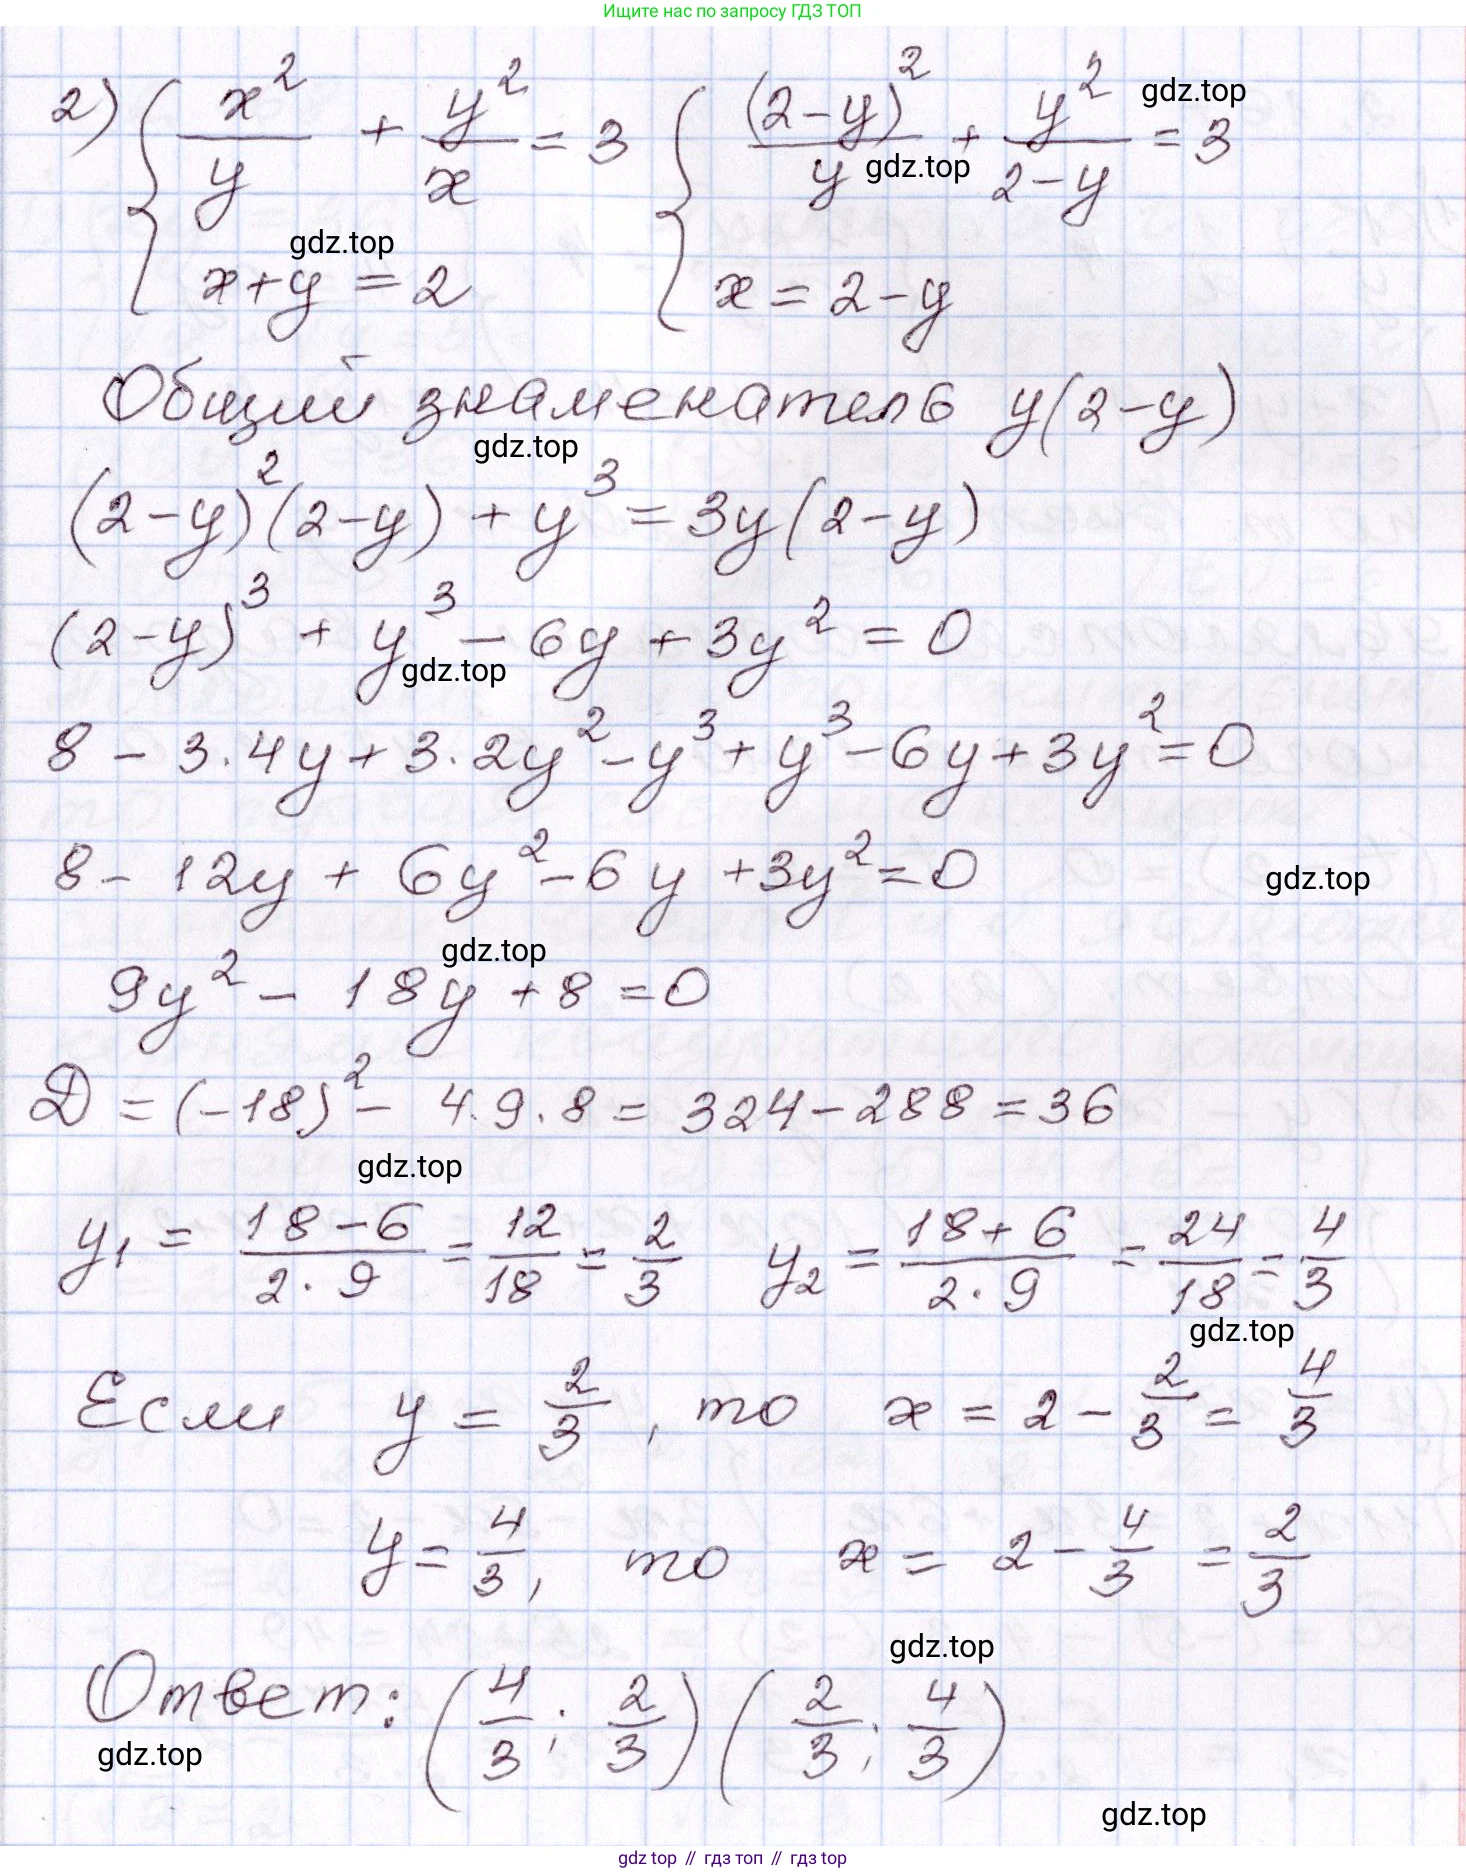 Ищите нас по запросу ГДЗ ТОП
2) { x²/y + y²/x = 3 { (2-y)²/y + y²/(2-y) = 3
gdz.top
gdz.top
gdz.top
x+y = 2 x = 2-y
Общий знаменатель y(2-y)
gdz.top
(2-y)²(2-y) + y³ = 3y(2-y)
(2-y)³ + y³ - 6y + 3y² = 0
gdz.top
8 - 3·4y + 3·2y² - y³ + y³ - 6y + 3y² = 0
8 - 12y + 6y² - 6y + 3y² = 0
gdz.top
gdz.top
9y² - 18y + 8 = 0
D = (-18)² - 4·9·8 = 324 - 288 = 36
gdz.top
y₁ = (18-6)/(2·9) = 12/18 = 2/3 y₂ = (18+6)/(2·9) = 24/18 = 4/3
gdz.top
Если y = 2/3, то x = 2 - 2/3 = 4/3
y = 4/3, то x = 2 - 4/3 = 2/3
gdz.top
Ответ: (4/3; 2/3) (2/3; 4/3)
gdz.top
gdz.top
gdz top // гдз топ // гдз top